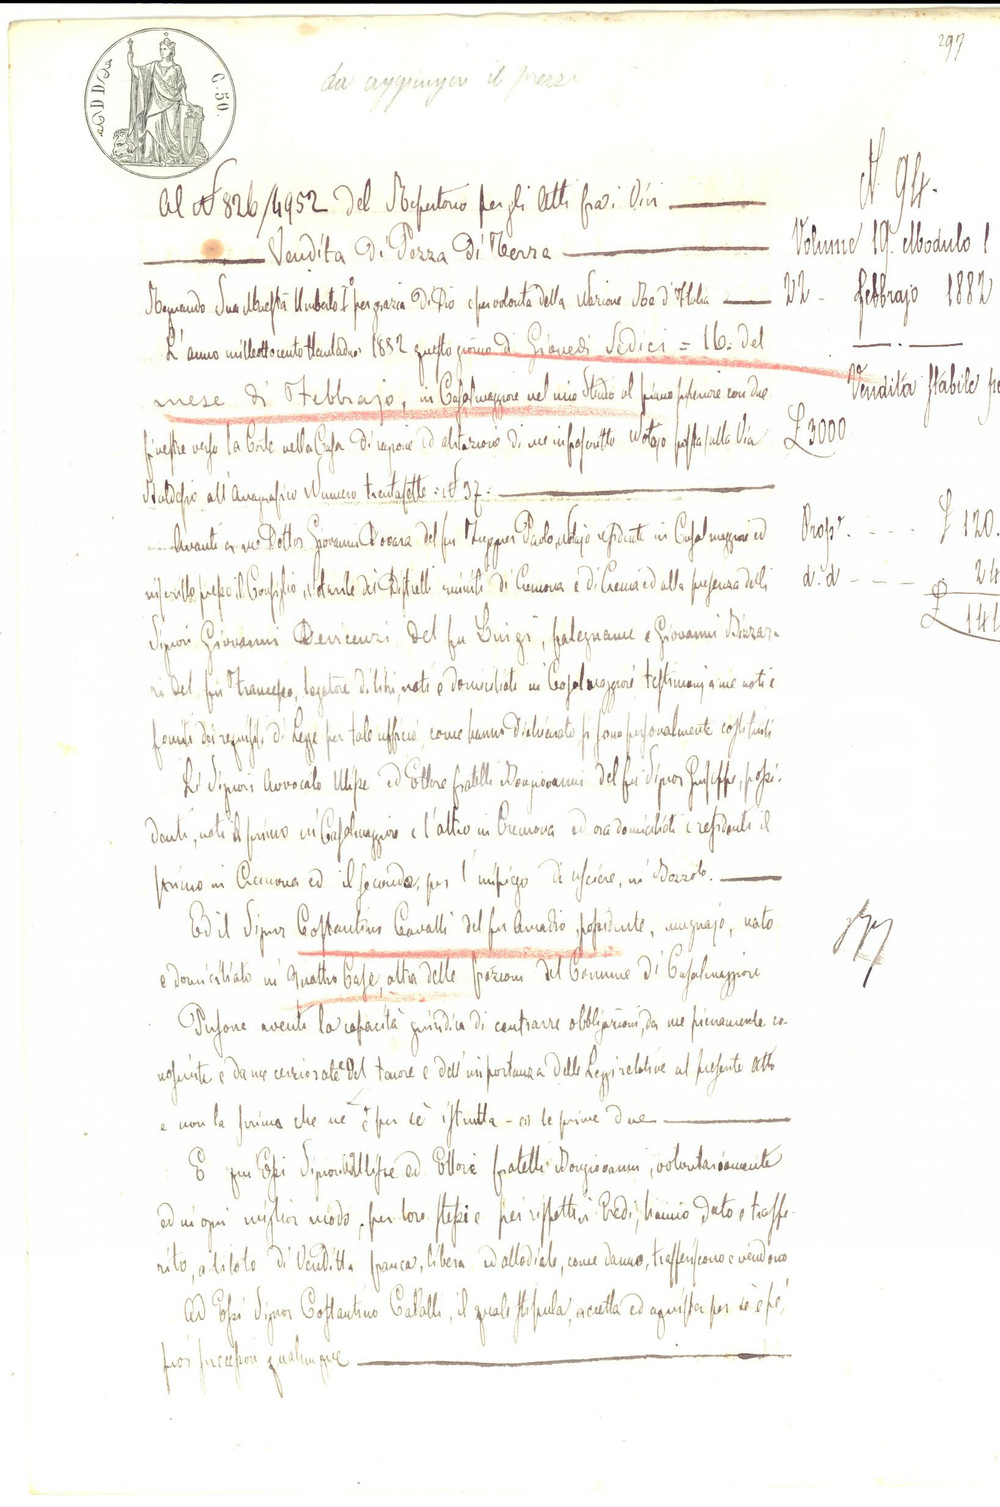 297
C. 50.
da aggiungere il prezzo
Al N 826/4952 del Repertorio per gli Atti fra i Vivi
Vendita di Pezza di Terra
Regnando Sua Maestà Umberto I° per grazia di Dio e per volontà della Nazione Re d'Italia
L'anno milleottocentottantadue 1882 questo giorno di Giovedì Sedici = 16 = del
mese di Febbrajo, in Casalmaggiore nel mio Studio al piano superiore con due
finestre verso la Corte nella Casa di ragione ed abitazione di me infrascritto Notajo posta sulla Via
Baldesio all'Anagrafico Numero trentasette = N 37 =
Avanti a me Dottor Giovanni Rovara del fu Paolo, Notajo residente in Casalmaggiore ed
inscritto presso il Consiglio Notarile dei Distretti riuniti di Cremona e di Crema ed alla presenza delli
Signori Giovanni Devicenzi del fu Luigi, falegname e Giovanni Bizzar-
ri del fu Francesco, legatore di libri, nati e domiciliati in Casalmaggiore testimonj a me noti e
forniti dei requisiti di Legge per tale ufficio, come hanno dichiarato si sono personalmente costituiti
Li Signori Avvocato Ulisse ed Ettore fratelli Bongiovanni del fu Signor Giuseppe, possi-
denti, nati il primo in Casalmaggiore e l'altro in Cremona ed ora domiciliati e residenti il
primo in Cremona ed il secondo, per l'impiego di usciere, in Bozzolo.
Ed il Signor Costantino Cavalli del fu Amadio, possidente, mugnajo, nato
e domiciliato in Quattro Case, altra delle frazioni del Comune di Casalmaggiore
Persone aventi la capacità giuridica di contrarre obbligazioni, da me pienamente co-
nosciute e da me cerziorate del tenore e dell'importanza delle Leggi relative al presente Atto
e non la prima che ne è per sè istrutta - le prime due
E qui Essi Signori Ulisse ed Ettore fratelli Bongiovanni, volontariamente
ed in ogni miglior modo, per loro stessi e pei rispettivi Eredi, hanno dato e trasfe-
rito, a titolo di Vendita franca, libera ed allodiale, come danno, trasferiscono e vendono
Ad Esso Signor Costantino Cavalli, il quale stipula, accetta ed acquista per sè e pe'
suoi successori qualunque
N. 94.
Volume 19. Modulo 1
22 Febbrajo 1882
Vendita stabile
£ 3000
Prop.e £ 120.
d.i d 24
£ 144